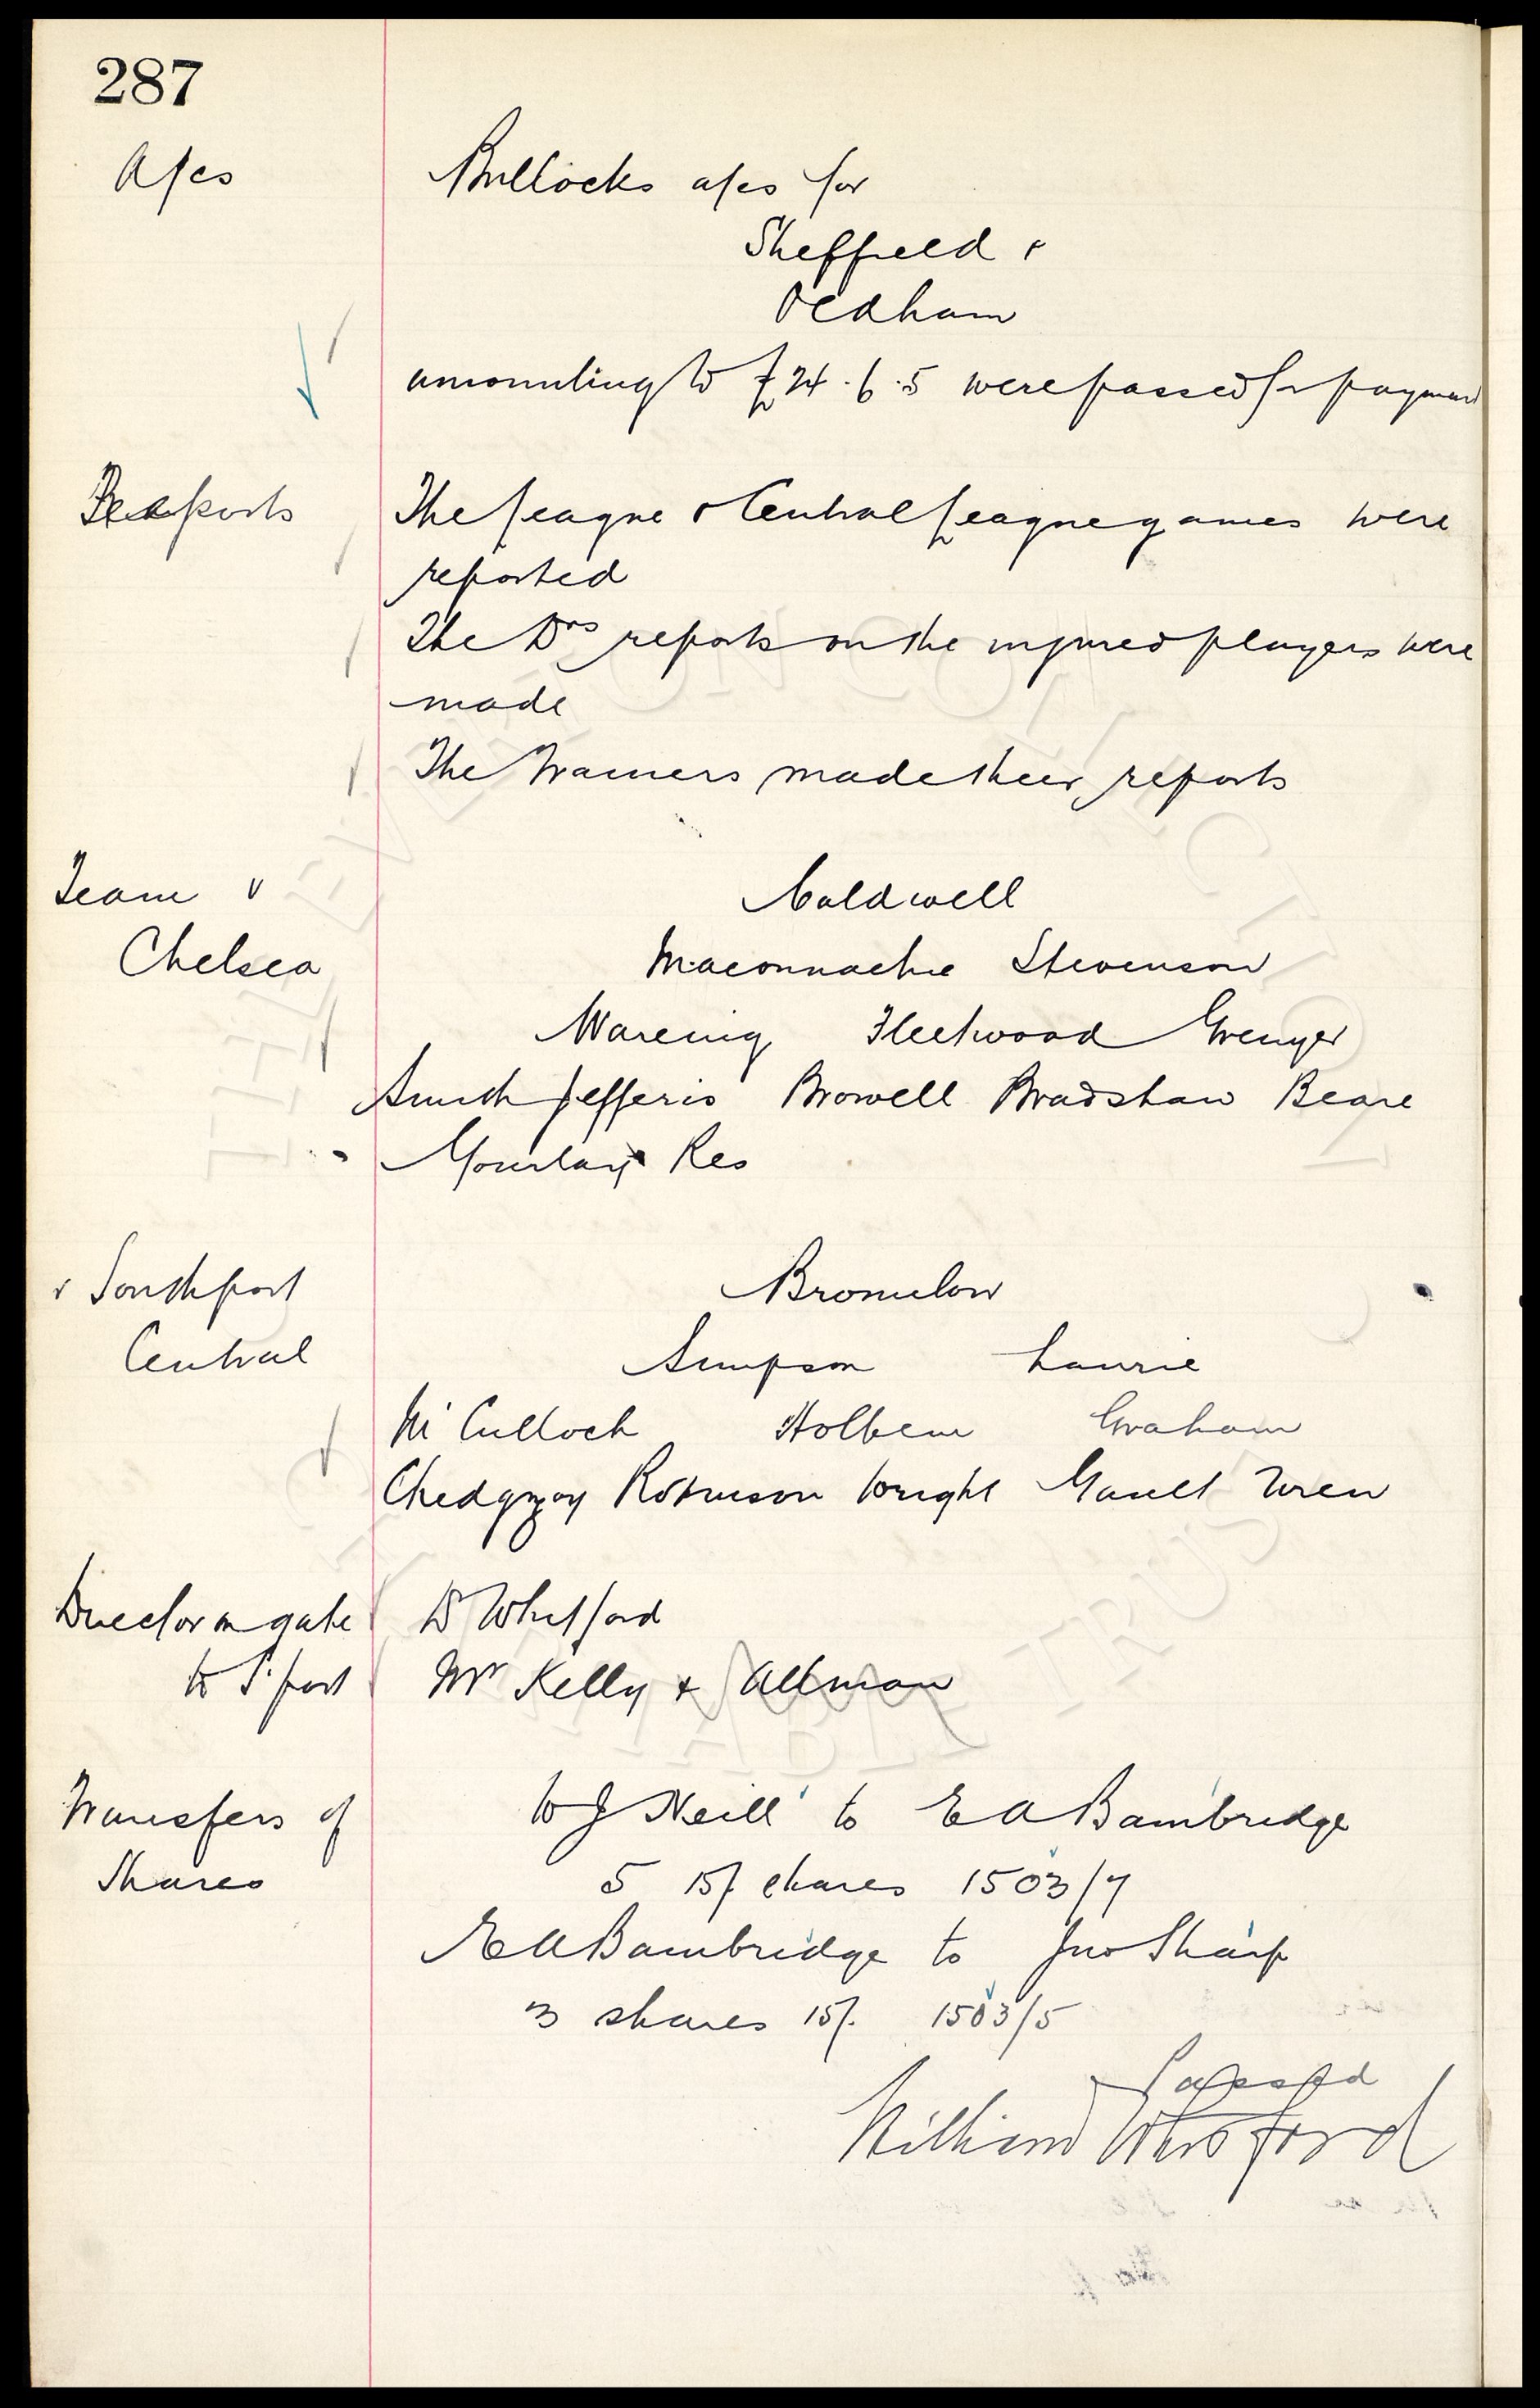 287
A/cs Bullocks a/cs for
Sheffield &
Oldham
amounting to £24.6.5 were passed for payment
Reports The League & Central League games were
reported
The Drs reports on the injured players were
made
The Trainers made their reports
Team v Caldwell
Chelsea Maconnachie Stevenson
Wareing Fleetwood Grenyer
Smith Jefferis Browell Bradshaw Beare
Gourlay Res
v Southport Bromilow
Central Simpson Laurie
McCulloch Holbem Graham
Chedgzoy Robinson Wright Gault Wren
Director on gate Dr Whitford
to S'port Mr Kelly & Allman
Transfers of W J Neill to E A Bambridge
Shares 5 15/. shares 1503/7
E A Bambridge to Jno Sharp
3 shares 15/. 1503/5
Passed
William Whitford
THE EVERTON COLLECTION
CHARITABLE TRUST